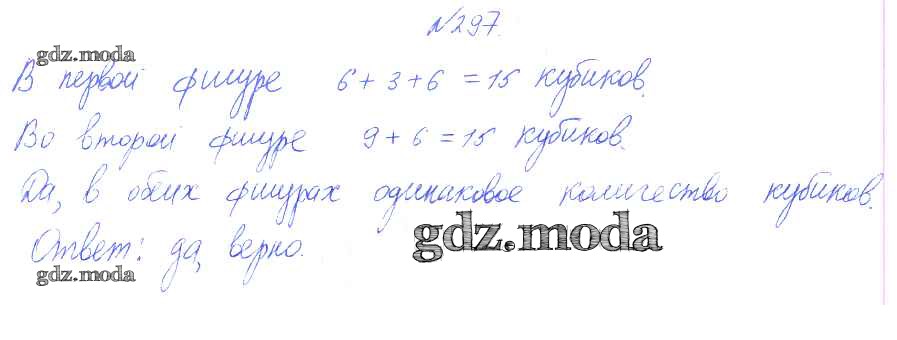 №297.
gdz.moda
В первой фигуре 6 + 3 + 6 = 15 кубиков.
Во второй фигуре 9 + 6 = 15 кубиков.
Да, в обеих фигурах одинаковое количество кубиков.
Ответ: да, верно.
gdz.moda
gdz.moda